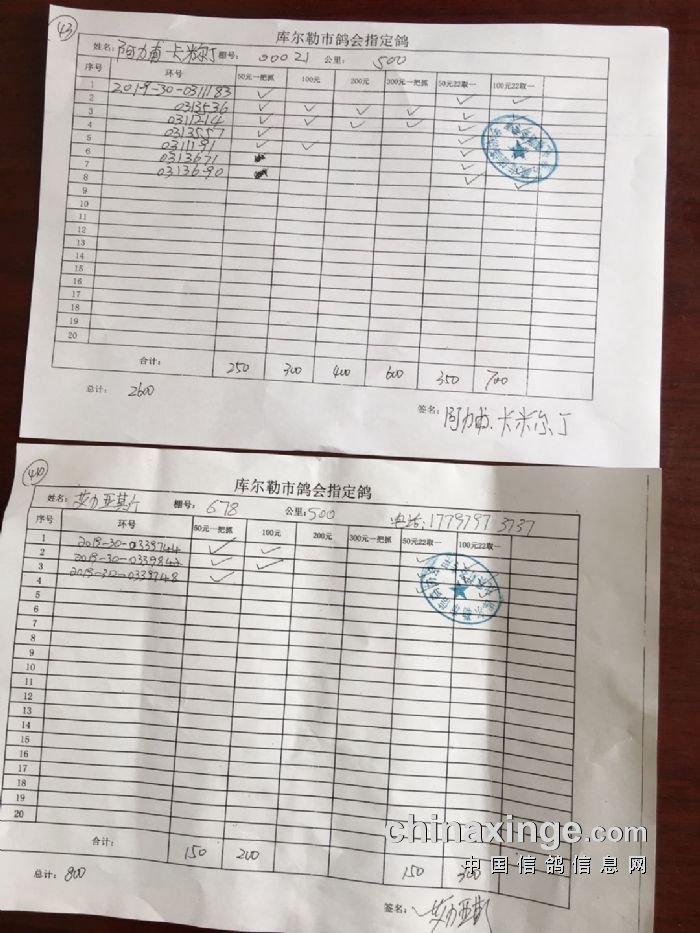 43
库尔勒市鸽会指定鸽
姓名: 阿力甫 卡米尔丁 棚号: 00021 公里: 500
序号 环号 50元一把抓 100元 200元 300元一把抓 50元22取一 100元22取一
1 2019-30-0311183 ✓ ✓ ✓
2 0313536 ✓ ✓ ✓ ✓ ✓ ✓
3 0311214 ✓ ✓ ✓ ✓ ✓
4 0313557 ✓ ✓
5 0311191 ✓ ✓ ✓
6 0313671 ✓
7 0313690 ✓ ✓
8
9
10
11
12
13
14
15
16
17
18
19
20
合计: 250 300 400 600 350 700
总计: 2600
签名: 阿力甫.卡米尔丁
库尔勒市鸽会指定鸽
姓名: 棚号: 678 公里: 500 电话: 1779797 3737
序号 环号 50元一把抓 100元 200元 300元一把抓 50元22取一 100元22取一
1 2019-30-0339744 ✓ ✓
2 2019-30-0339842 ✓ ✓ ✓
3 2019-30-0339748 ✓
4
5
6
7
8
9
10
11
12
13
14
15
16
17
18
19
20
合计: 150 200 150 300
总计: 800
签名:
chinaxinge.com
中国信鸽信息网